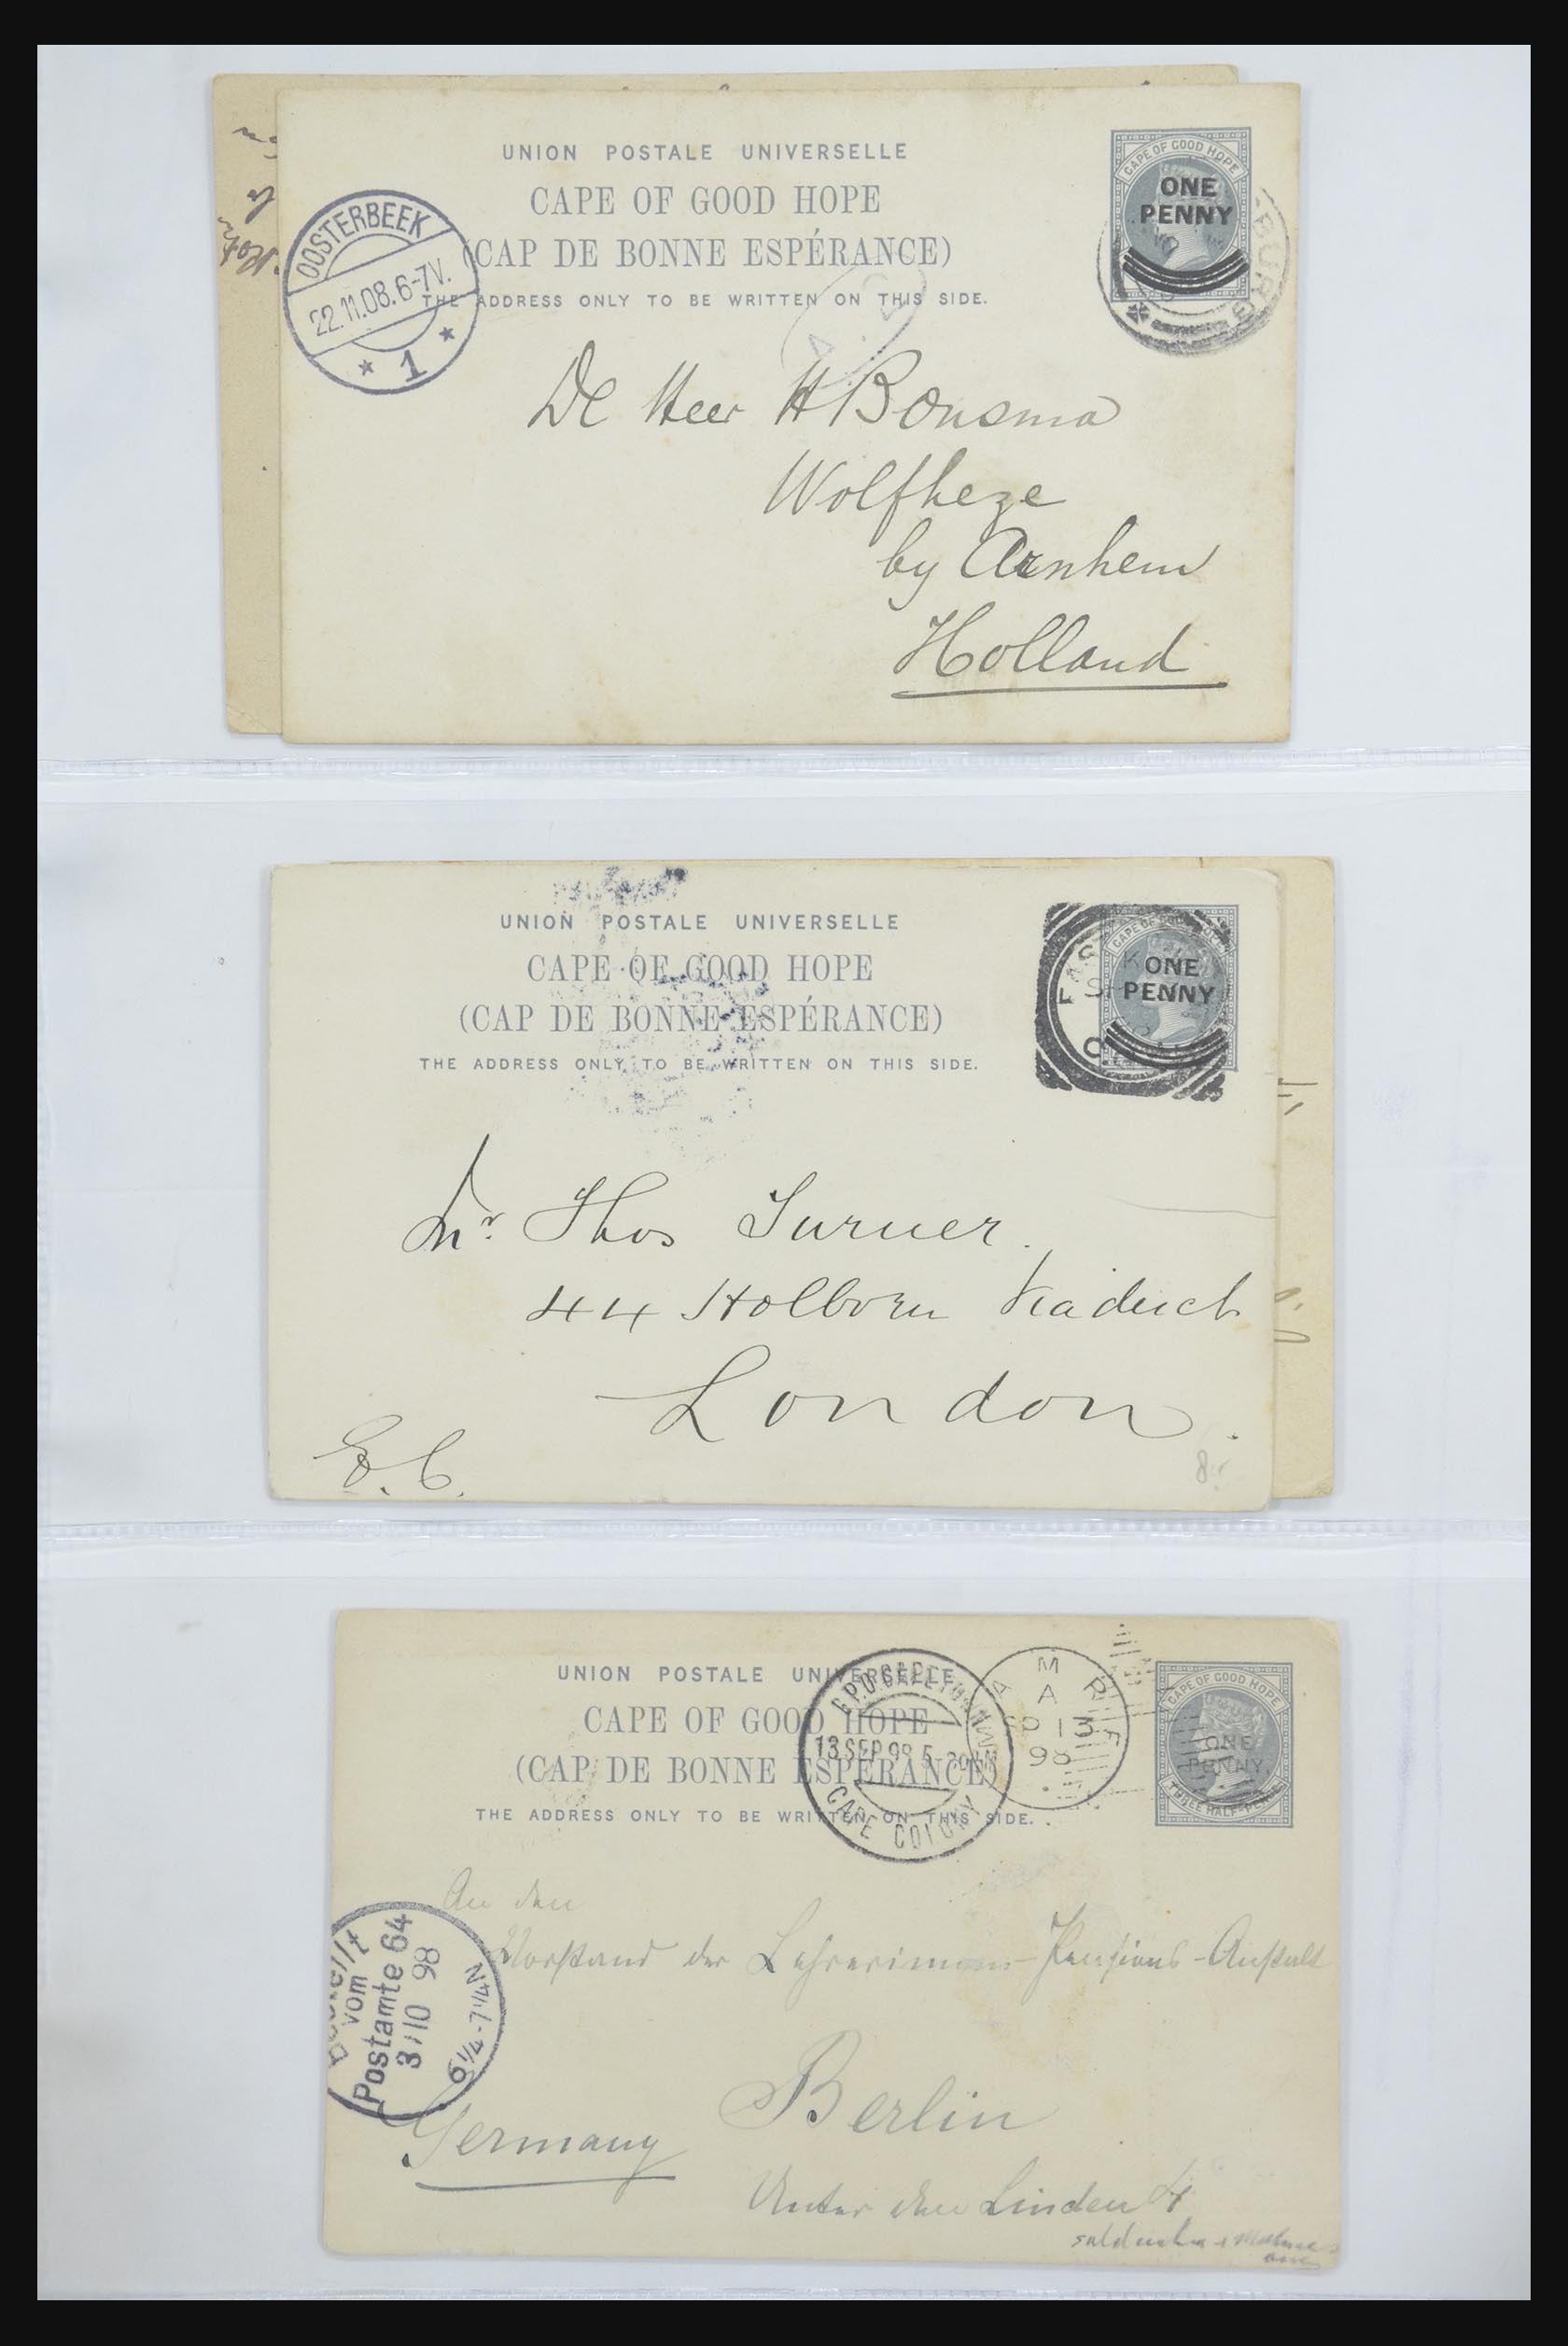 UNION POSTALE UNIVERSELLE
CAPE OF GOOD HOPE
(CAP DE BONNE ESPÉRANCE)
THE ADDRESS ONLY TO BE WRITTEN ON THIS SIDE.
CAPE OF GOOD HOPE
ONE
PENNY
BURG
OOSTERBEEK
22.11.08.6-7V.
1
De Heer H Bonsma
Wolfheze
by Arnhem
Holland
UNION POSTALE UNIVERSELLE
CAPE OF GOOD HOPE
(CAP DE BONNE ESPÉRANCE)
THE ADDRESS ONLY TO BE WRITTEN ON THIS SIDE.
ONE
PENNY
Mr. Thos Turner.
44 Holborn Viaduct
London.
E.C.
8
UNION POSTALE UNIVERSELLE
CAPE OF GOOD HOPE
(CAP DE BONNE ESPÉRANCE)
THE ADDRESS ONLY TO BE WRITTEN ON THIS SIDE.
CAPE OF GOOD HOPE
ONE
PENNY.
THREE HALF-PENCE
G.P.O. CAPETOWN
13 SEP 98 5
CAPE COLONY
M
A
98
An den
Vorstand der Lehrerinnen-Pensions-Anstalt
Berlin
Germany
Unter den Linden 4
Bestellt
vom
Postamte 64
3/10 98
6¼-7¼N